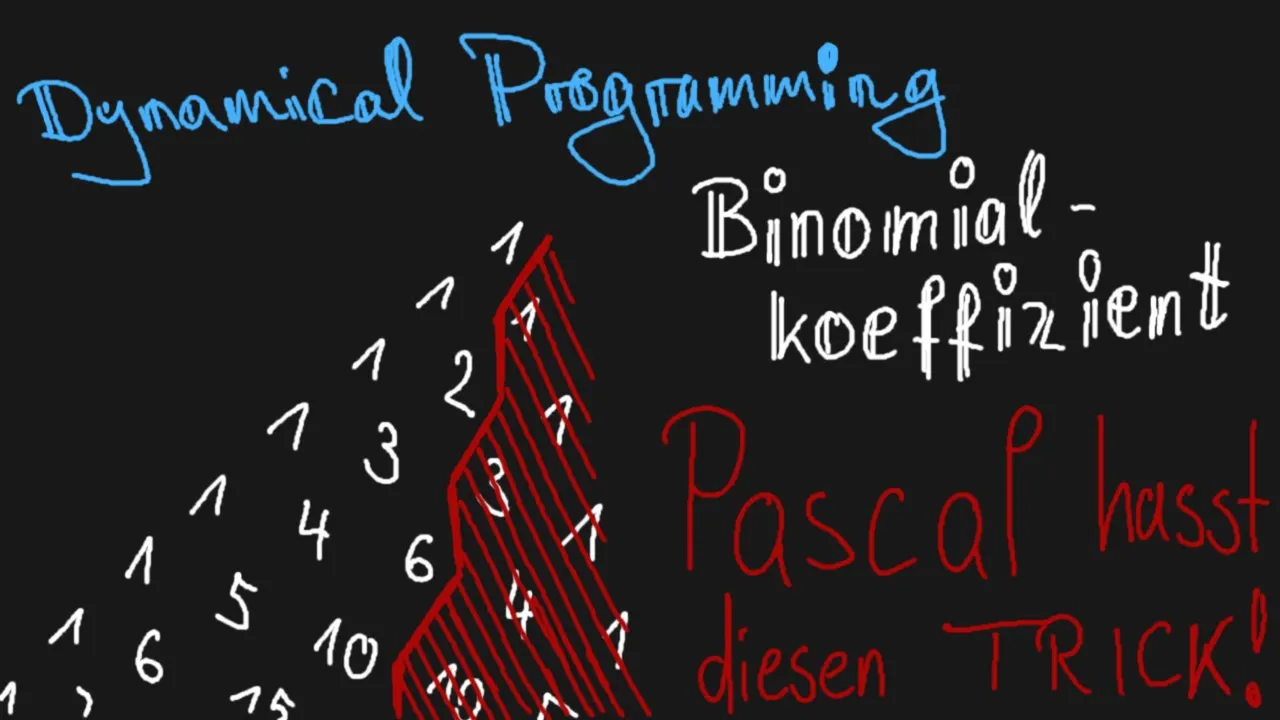 Dynamical Programming
Binomial-
koeffizient
Pascal hasst
diesen TRICK!
1
1 1
1 2 1
1 3 3 1
1 4 6 4 1
1 5 10 10
1 6 15
1